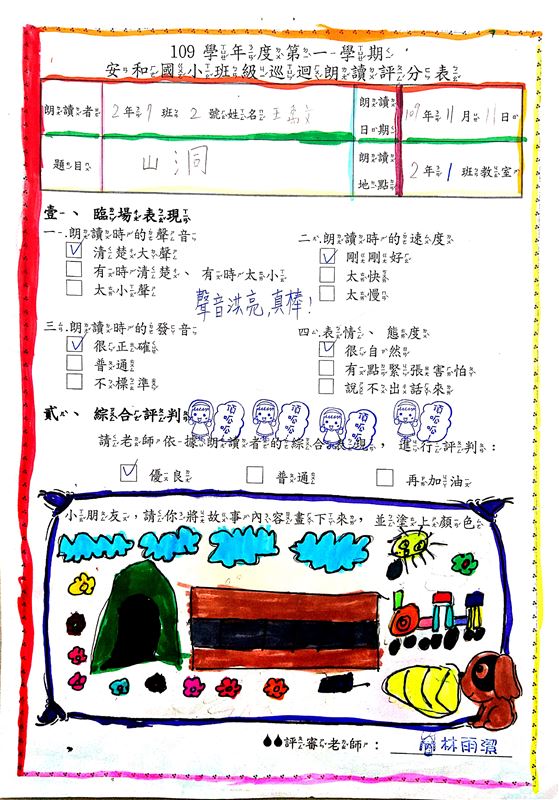 109 學年度第一學期
安和國小班級巡迴朗讀評分表
朗讀者 2年7班 2號姓名 王 朗讀日期 109年11月11日
題目 山洞 朗讀地點 2年1班教室
壹、 臨場表現
一.朗讀時的聲音
清楚大聲
有時清楚、有時太小
太小聲
二.朗讀時的速度
剛剛好
太快
太慢
聲音洪亮,真棒!
三.朗讀時的發音
很正確
普通
不標準
四.表情、態度
很自然
有點緊張害怕
說不出話來
貳、 綜合評判
頂呱呱 頂呱呱 頂呱呱 頂呱呱
請老師依據朗讀者的綜合表現,進行評判:
優良 普通 再加油
小朋友,請你將故事內容畫下來,並塗上顏色
評審老師: 林雨潔